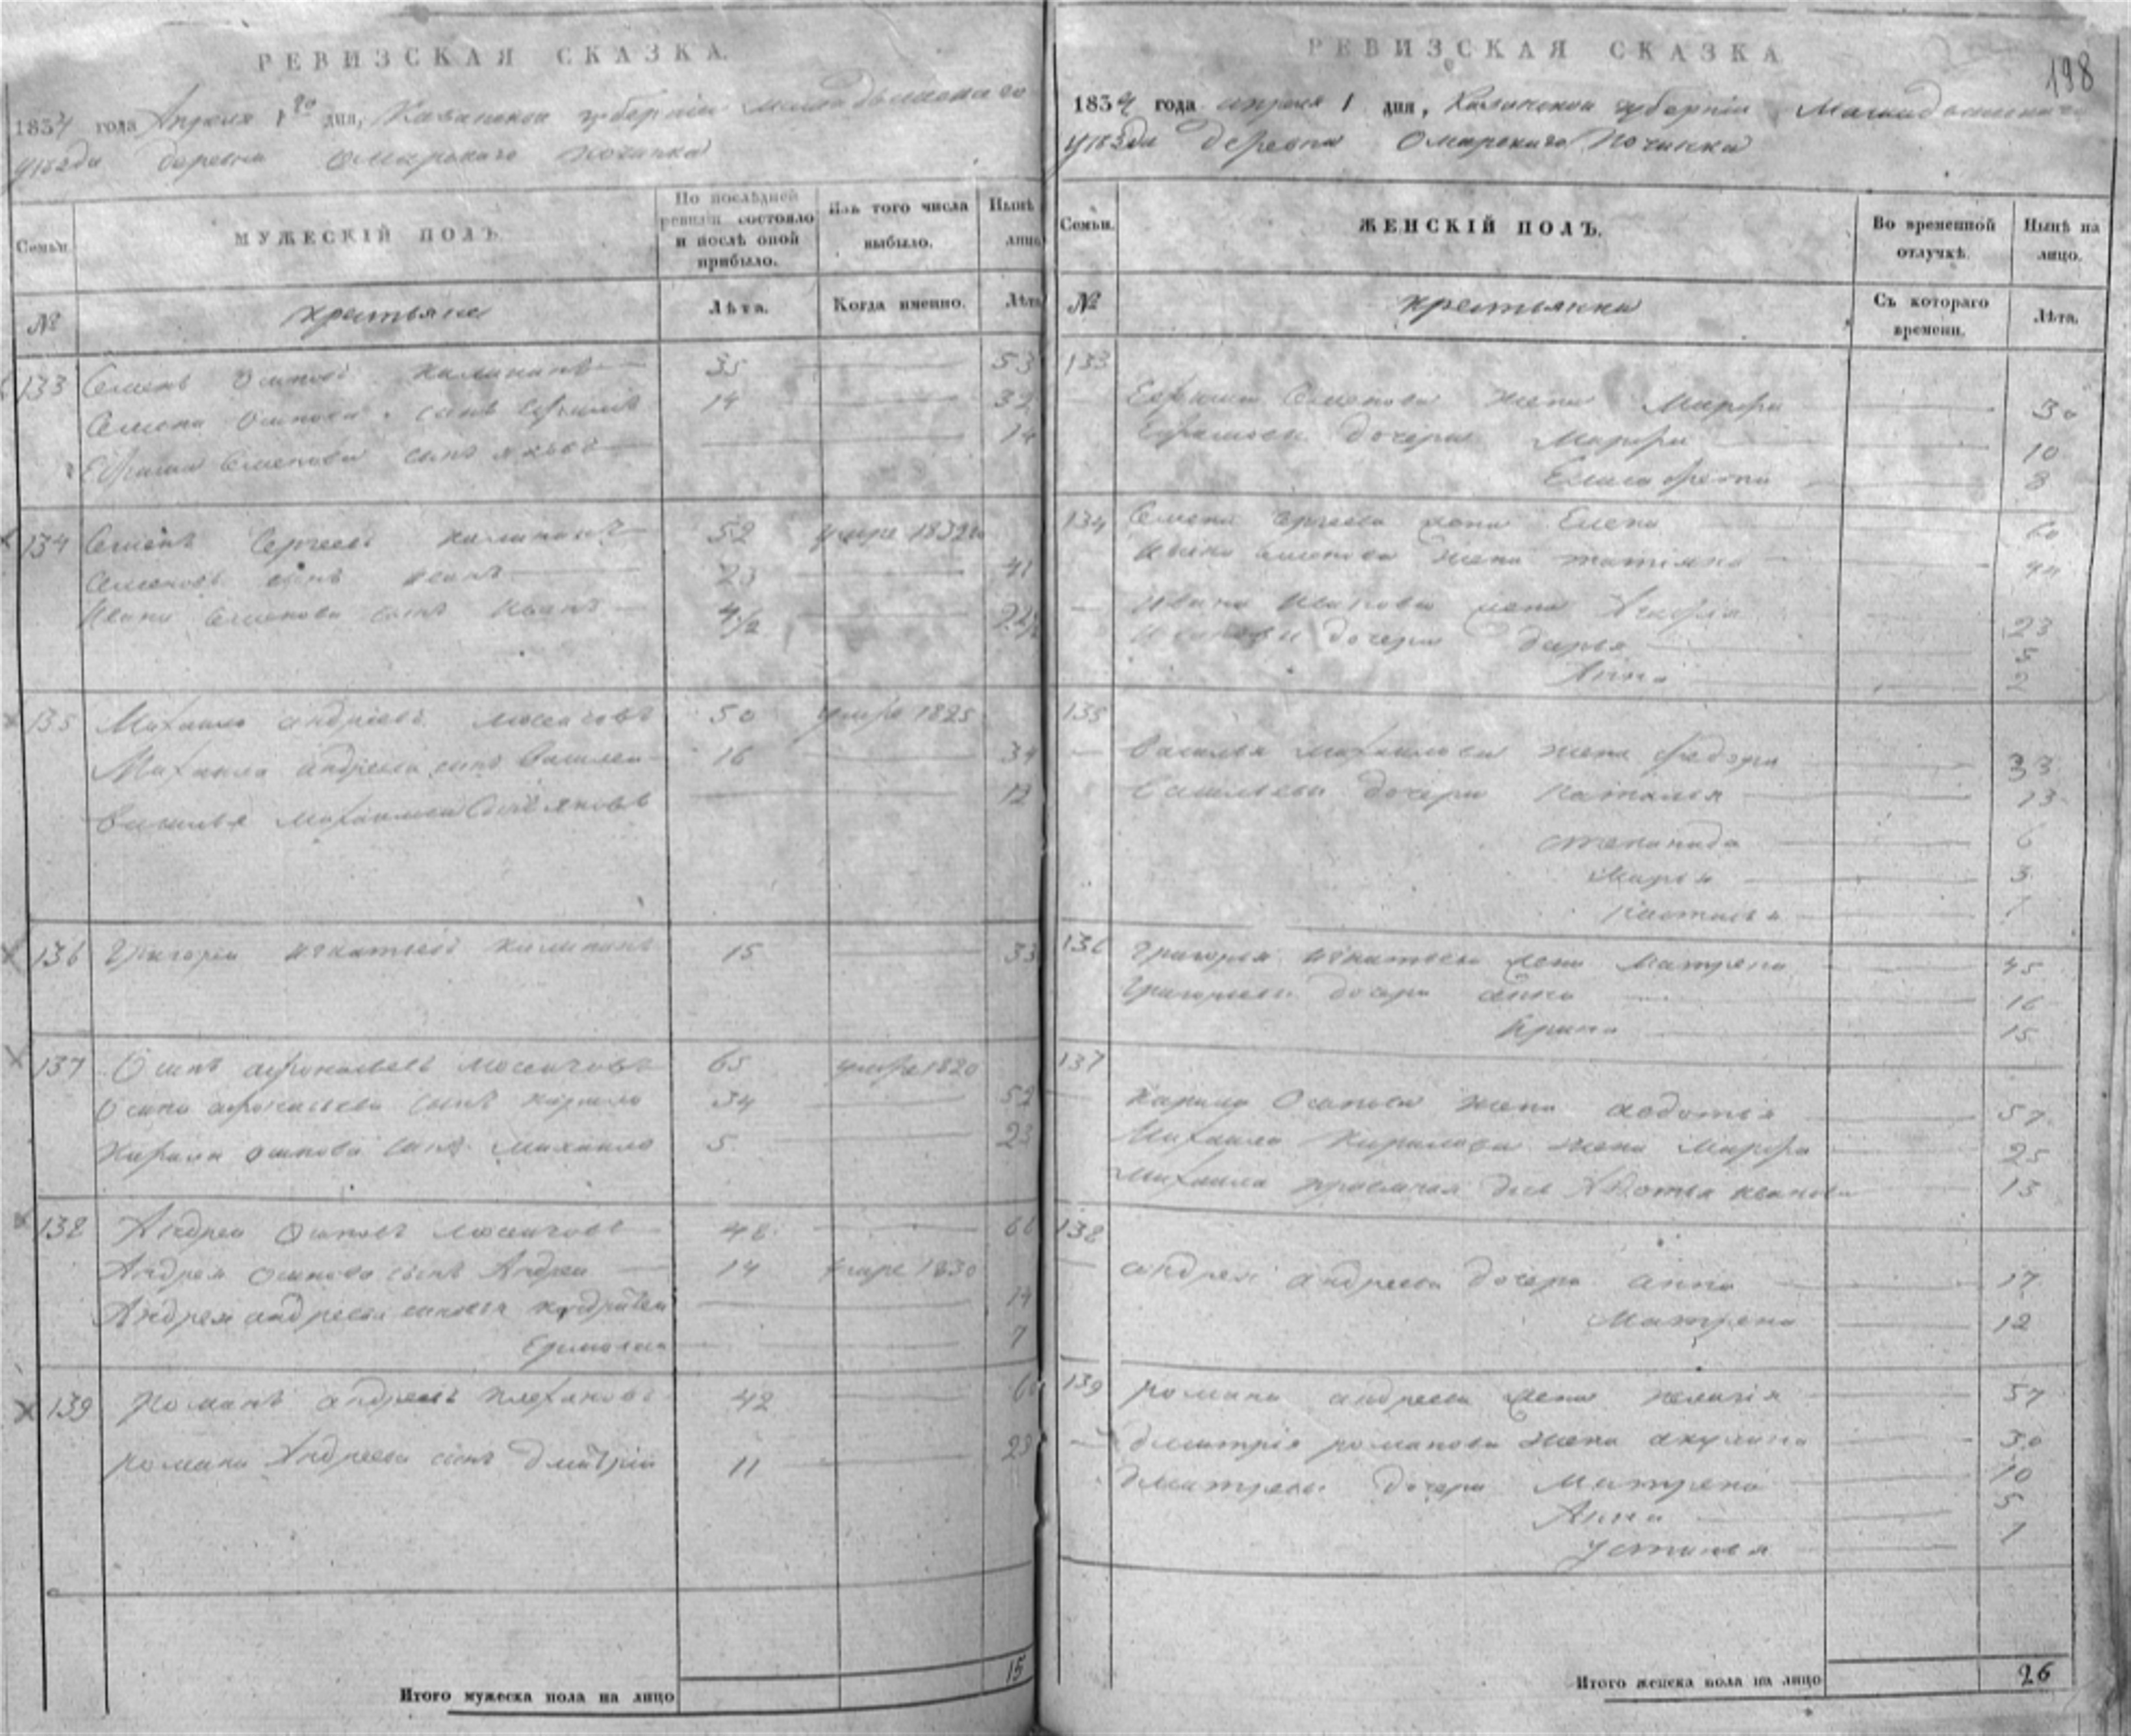 РЕВИЗСКАЯ СКАЗКА.
1834 года Апреля 1го дня, Казанской губернии Мамадышского
уѣзда деревни Омарского Починка
Семьи.
МУЖЕСКІЙ ПОЛЪ
По послѣдней ревизіи состояло и послѣ оной прибыло.
Изъ того числа выбыло.
Нынѣ лицо
№
крестьяне
Лѣта.
Когда именно.
Лѣта
133 Семенъ Осиповъ 35 53
Семена Осипова сынъ 14 32
Семенова сынъ Яковъ 14
134 Семенъ Сергеевъ 52 умре 1832
Семеновъ сынъ Иванъ 23 41
Ивана Семенова сынъ Иванъ 4 1/2 22 1/2
135 Михайло Андреевъ 50 умре 1825
Михайла Андреева сынъ Василей 16 34
Василья Михайлова сынъ Яковъ 12
136 Григорей Игнатьевъ 15 33
137 Осипъ Афонасьевъ 65 умре 1820
Осипа Афонасьева сынъ Кирило 34 52
Кирила Осипова сынъ Михайло 5 23
138 Андрей Осиповъ 48 66
Андрея Осипова сынъ Андрей 14 умре 1830
Андрея Андреева сыновья Кондратей 14
Ермолай 7
139 Романъ Андреевъ Плехановъ 42 60
Романа Андреева сынъ Дмитрій 11 29
Итого мужеска пола на лицо 15
РЕВИЗСКАЯ СКАЗКА
198
1834 года апреля 1 дня, Казанской губерніи Мамадышского
уѣзда деревни Омарского Починка
Семьи.
ЖЕНСКІЙ ПОЛЪ.
Во временной отлучкѣ.
Нынѣ на лицо.
№
крестьянки
Съ котораго времени.
Лѣта.
133
Семенова жена Марфа 30
дочери Марфа 10
Елисафета 8
134 Семена Сергеева жена Елена 60
Ивана Семенова жена Татіяна 44
Ивана Иванова жена 23
Ивановы дочери Дарья 5
Анна 2
135
Василья Михайлова жена Федора 33
Васильевы дочери Наталья 13
Степанида 6
Марья 3
Настасья 1
136 Григорья Игнатьева жена Матрена 45
Григорьевы дочери Анна 16
Ирина 15
137
Кирила Осипова жена Авдотья 57
Михайла Кирилова жена Марфа 25
Михайла Авдотья Иванова 13
138
Андрея Андреева дочери Анна 17
Матрена 12
139 Романа Андреева жена Пелагія 57
Дмитрія Романова жена Акулина 30
Дмитревы дочери Матрена 10
Анна 5
Устинья 1
Итого женска пола на лицо 26